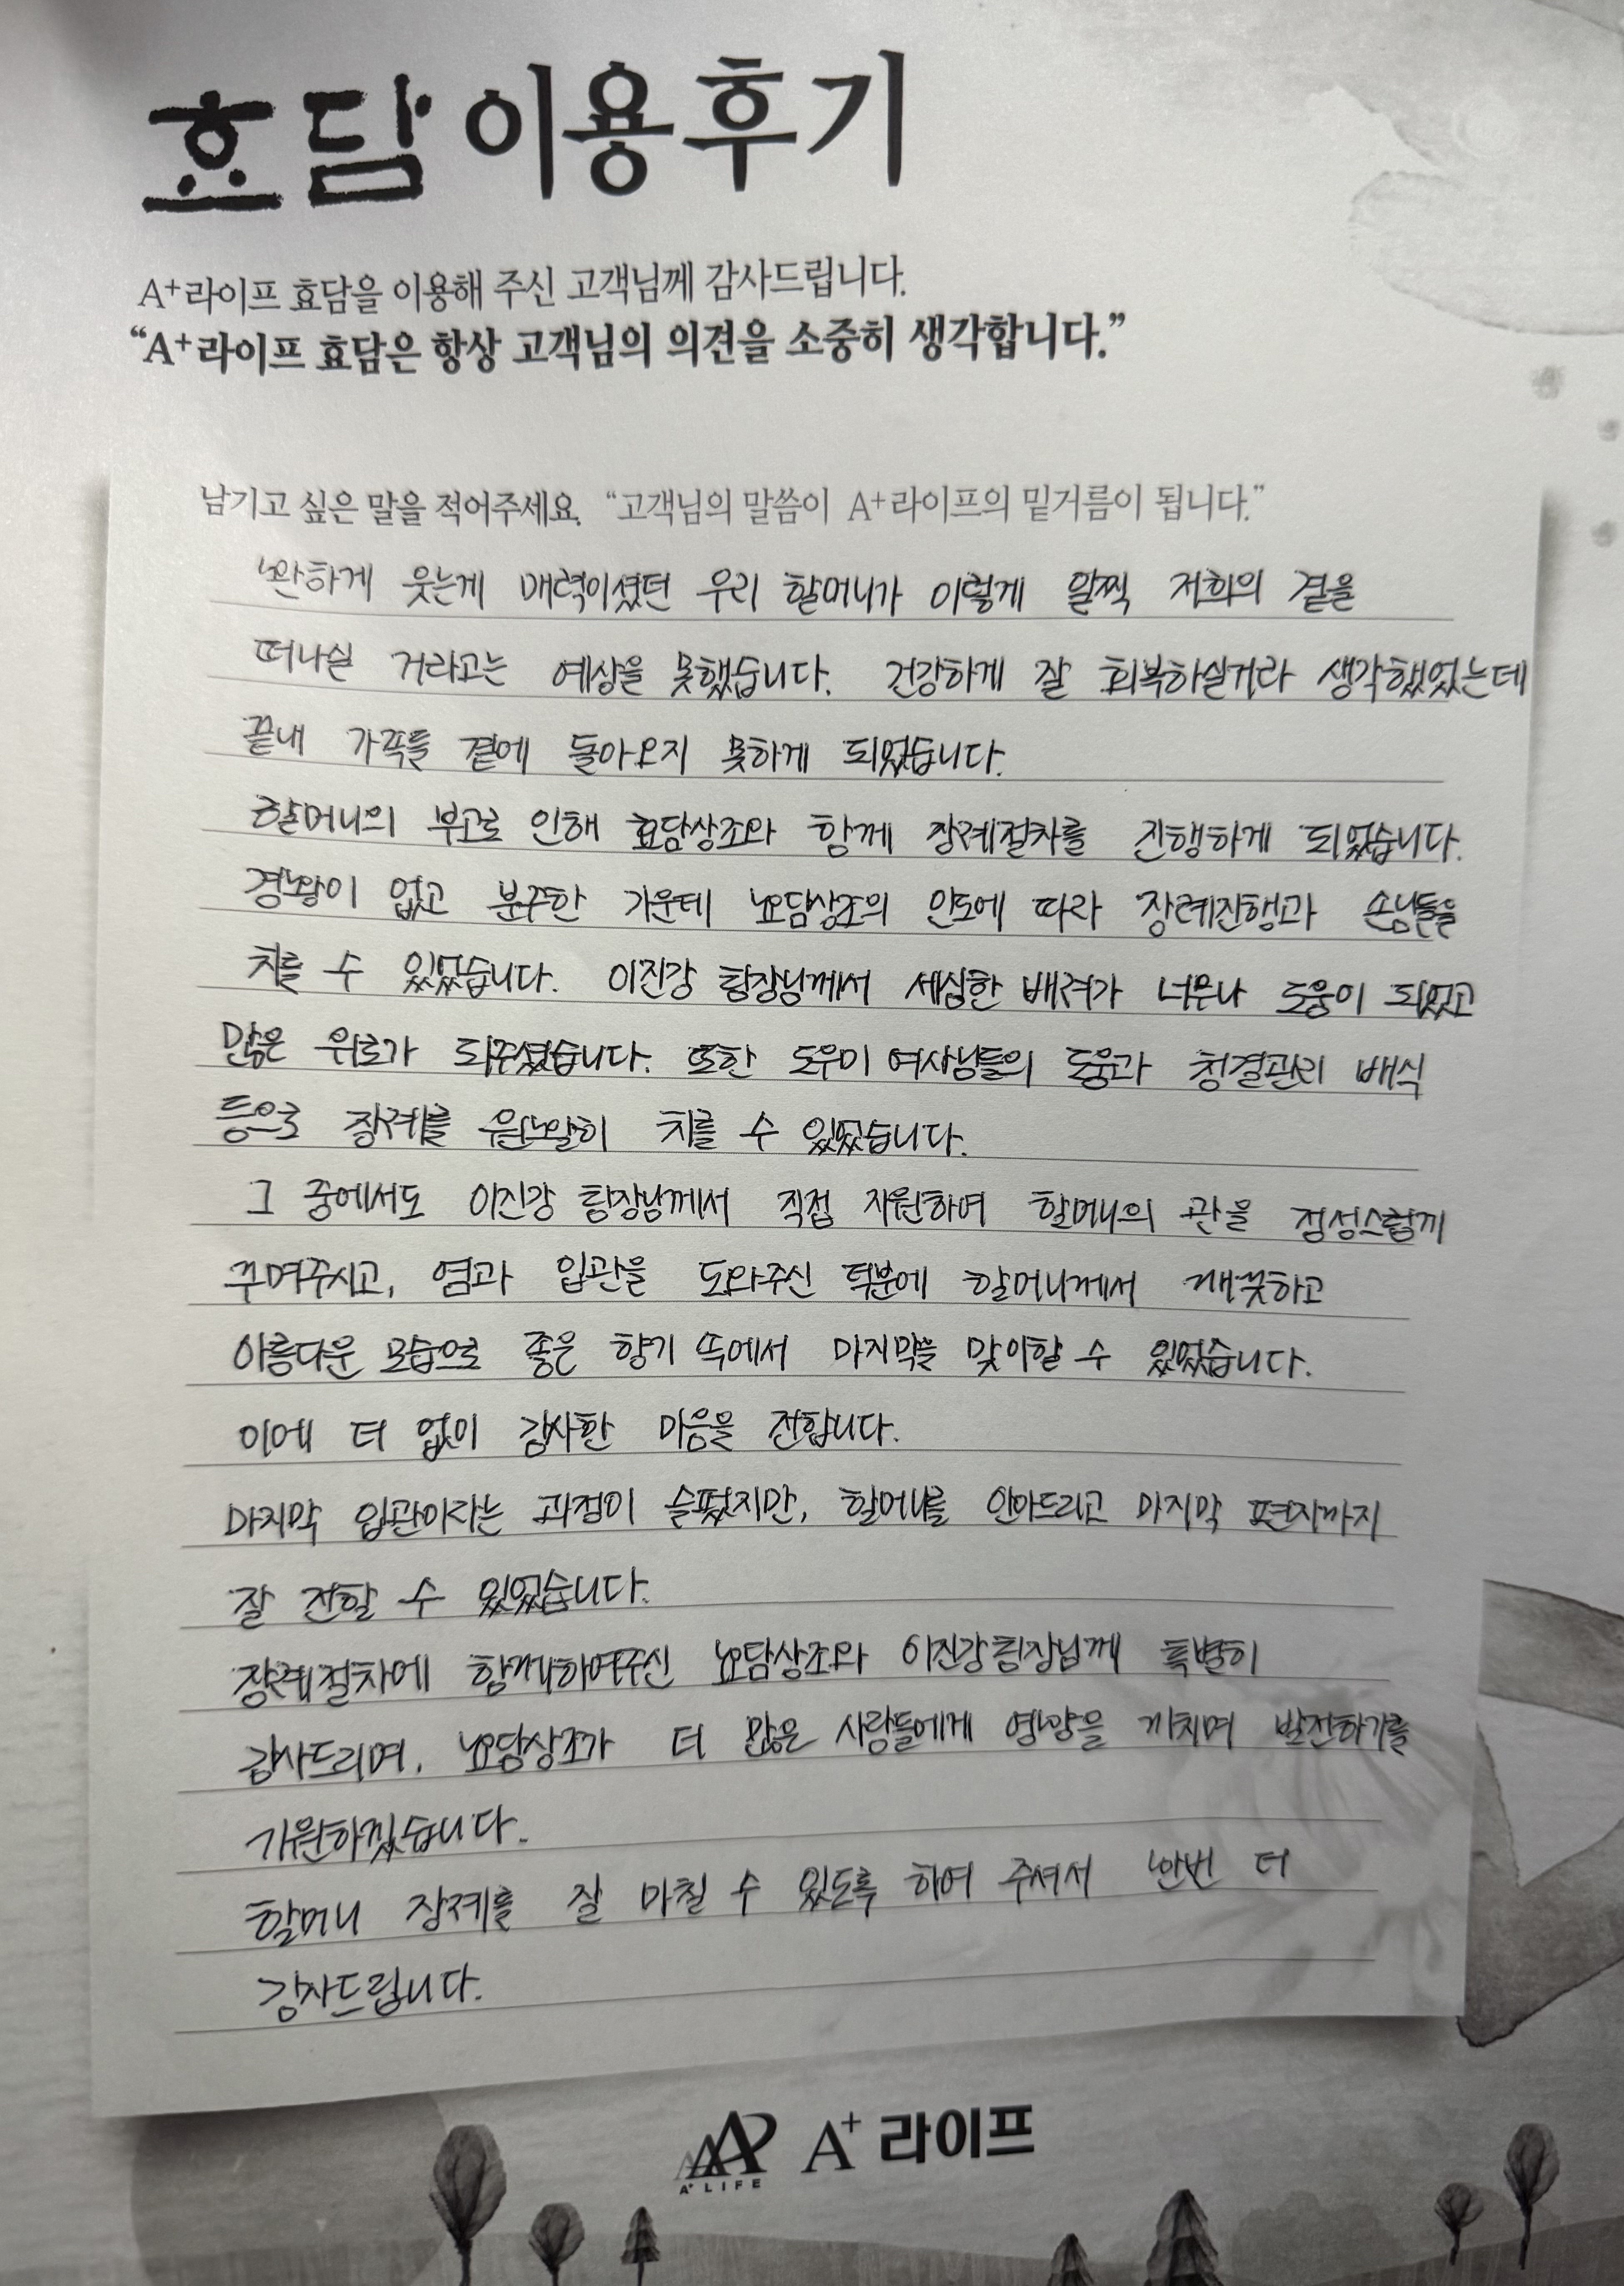 효담 이용후기
A+라이프 효담을 이용해 주신 고객님께 감사드립니다.
“A+라이프 효담은 항상 고객님의 의견을 소중히 생각합니다.”
남기고 싶은 말을 적어주세요. “고객님의 말씀이 A+라이프의 밑거름이 됩니다.”
환하게 웃는게 매력이셨던 우리 할머니가 이렇게 일찍 저희의 곁을
떠나실 거라고는 예상을 못했습니다. 건강하게 잘 회복하실거라 생각했었는데
끝내 가족들 곁에 돌아오지 못하게 되었습니다.
할머니의 부고로 인해 효담상조와 함께 장례절차를 진행하게 되었습니다.
경황이 없고 분주한 가운데 효담상조의 인도에 따라 장례진행과 손님들을
치를 수 있었습니다. 이진강 팀장님께서 세심한 배려가 너무나 도움이 되었고
많은 위로가 되주셨습니다. 또한 도우미 여사님들의 도움과 청결관리 배식
등으로 장례를 원활히 치를 수 있었습니다.
그 중에서도 이진강 팀장님께서 직접 자원하여 할머니의 관을 정성스럽게
꾸며주시고, 염과 입관을 도와주신 덕분에 할머니께서 깨끗하고
아름다운 모습으로 좋은 향기 속에서 마지막을 맞이할 수 있었습니다.
이에 더 없이 감사한 마음을 전합니다.
마지막 입관이라는 과정이 슬펐지만, 할머니를 안아드리고 마지막 편지까지
잘 전할 수 있었습니다.
장례절차에 함께하여주신 효담상조와 이진강팀장님께 특별히
감사드리며, 효담상조가 더 많은 사람들에게 영향을 끼치며 발전하기를
기원하겠습니다.
할머니 장례를 잘 마칠 수 있도록 하여 주셔서 한번 더
감사드립니다.
A+ LIFE
A+ 라이프